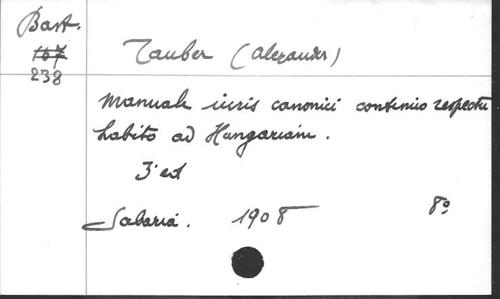 Bart.
167
238
Tauber (Alexander)
Manuale iuris canonici continuo respectu
habito ad Hungariam.
3ª ed
Sabaria. 1908 8º